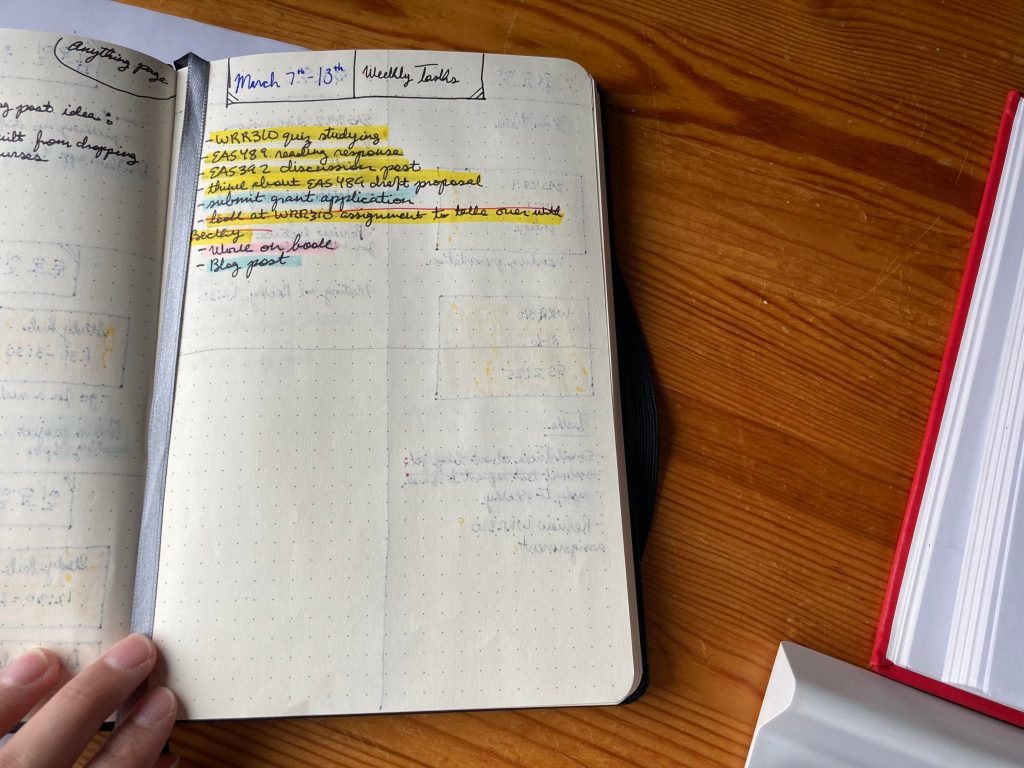 Anything page
g post idea:
uilt from dropping
urses
March 7th-13th
Weekly Tasks
- WRR310 quiz studying
- EAS489 reading response
- EAS392 discussion post
- think about EAS489 draft proposal
- submit grant application
- look at WRR310 assignment to talk over with
Becky
- Work on book
- Blog post